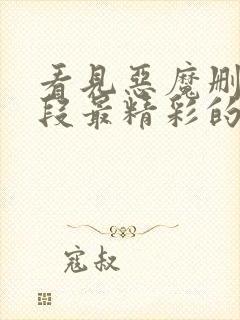 看見惡魔刪
段最精彩的
寇叔